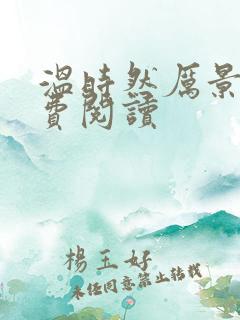 溫時然厲景
費閱讀
楊玉好
未經同意禁止轉載